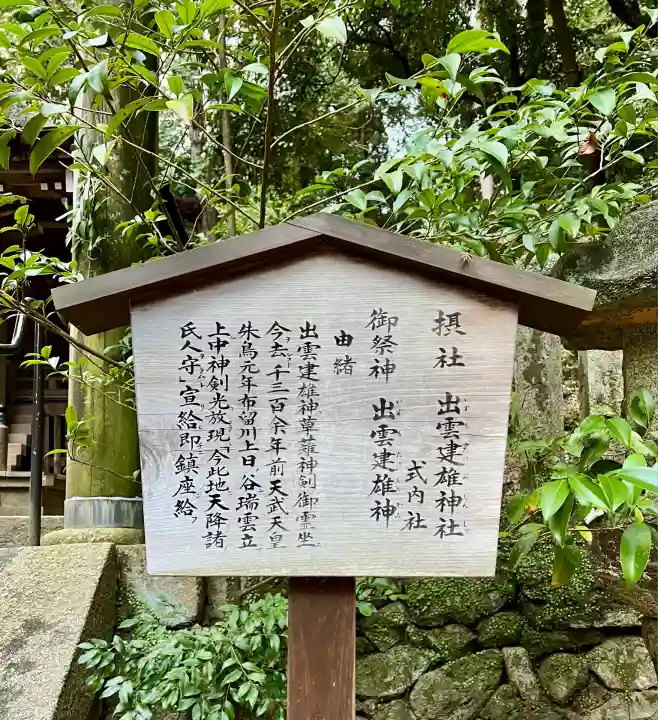 摂社 出雲建雄神社
式内社
御祭神 出雲建雄神
由緒
出雲建雄神草薙神剣御霊坐
今去一千三百余年前天武天皇
朱鳥元年布留川上日谷瑞雲立
上中神剣光放現「今此地天降諸
氏人守」宣給即鎮座給